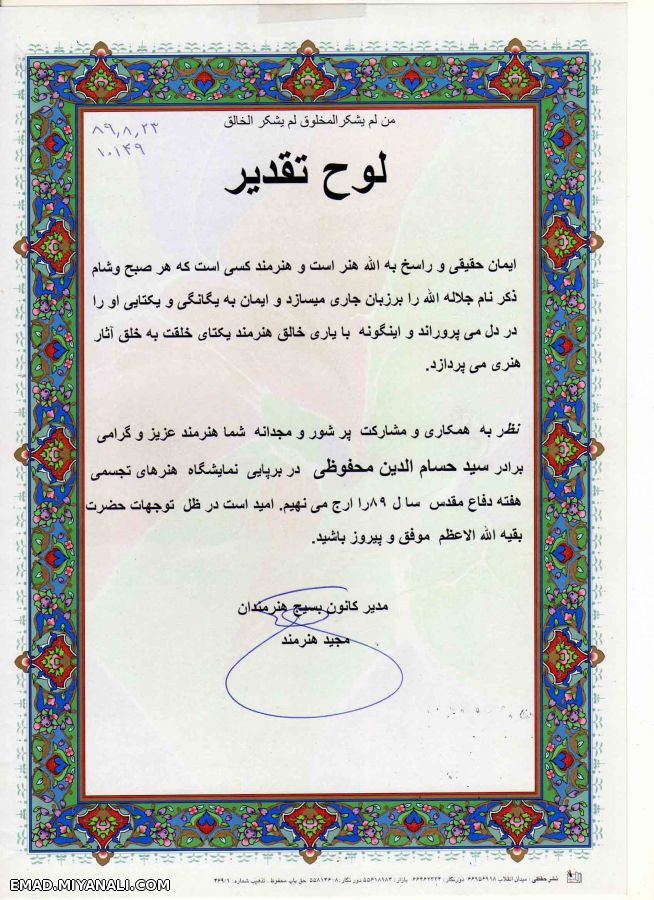 من لم يشكر المخلوق لم يشكر الخالق
۸۹٫۸٫۲۳
۱۰۱۴۹
لوح تقدیر
ایمان حقیقی و راسخ به الله هنر است و هنرمند کسی است که هر صبح وشام
ذکر نام جلاله الله را برزبان جاری میسازد و ایمان به یگانگی و یکتایی او را
در دل می پروراند و اینگونه با یاری خالق هنرمند یکتای خلقت به خلق آثار
هنری می پردازد.
نظر به همکاری و مشارکت پر شور و مجدانه شما هنرمند عزیز و گرامی
برادر سید حسام الدین محفوظی در برپایی نمایشگاه هنرهای تجسمی
هفته دفاع مقدس سا ل ۸۹را ارج می نهیم. امید است در ظل توجهات حضرت
بقیه الله الاعظم موفق و پیروز باشید.
مدیر کانون بسیج هنرمندان
مجید هنرمند
نشر حقیقی : میدان انقلاب ۶۶۹۵۶۹۱۸ دورنگار: ۶۶۴۶۲۲۳۴ بازار: ۵۵۶۱۸۹۸۴ دورنگار: ۵۵۸۱۴۶۰۸ حق چاپ محفوظ . تذهیب شماره: ۴۶۹/۱
EMAD.MIYANALI.COM